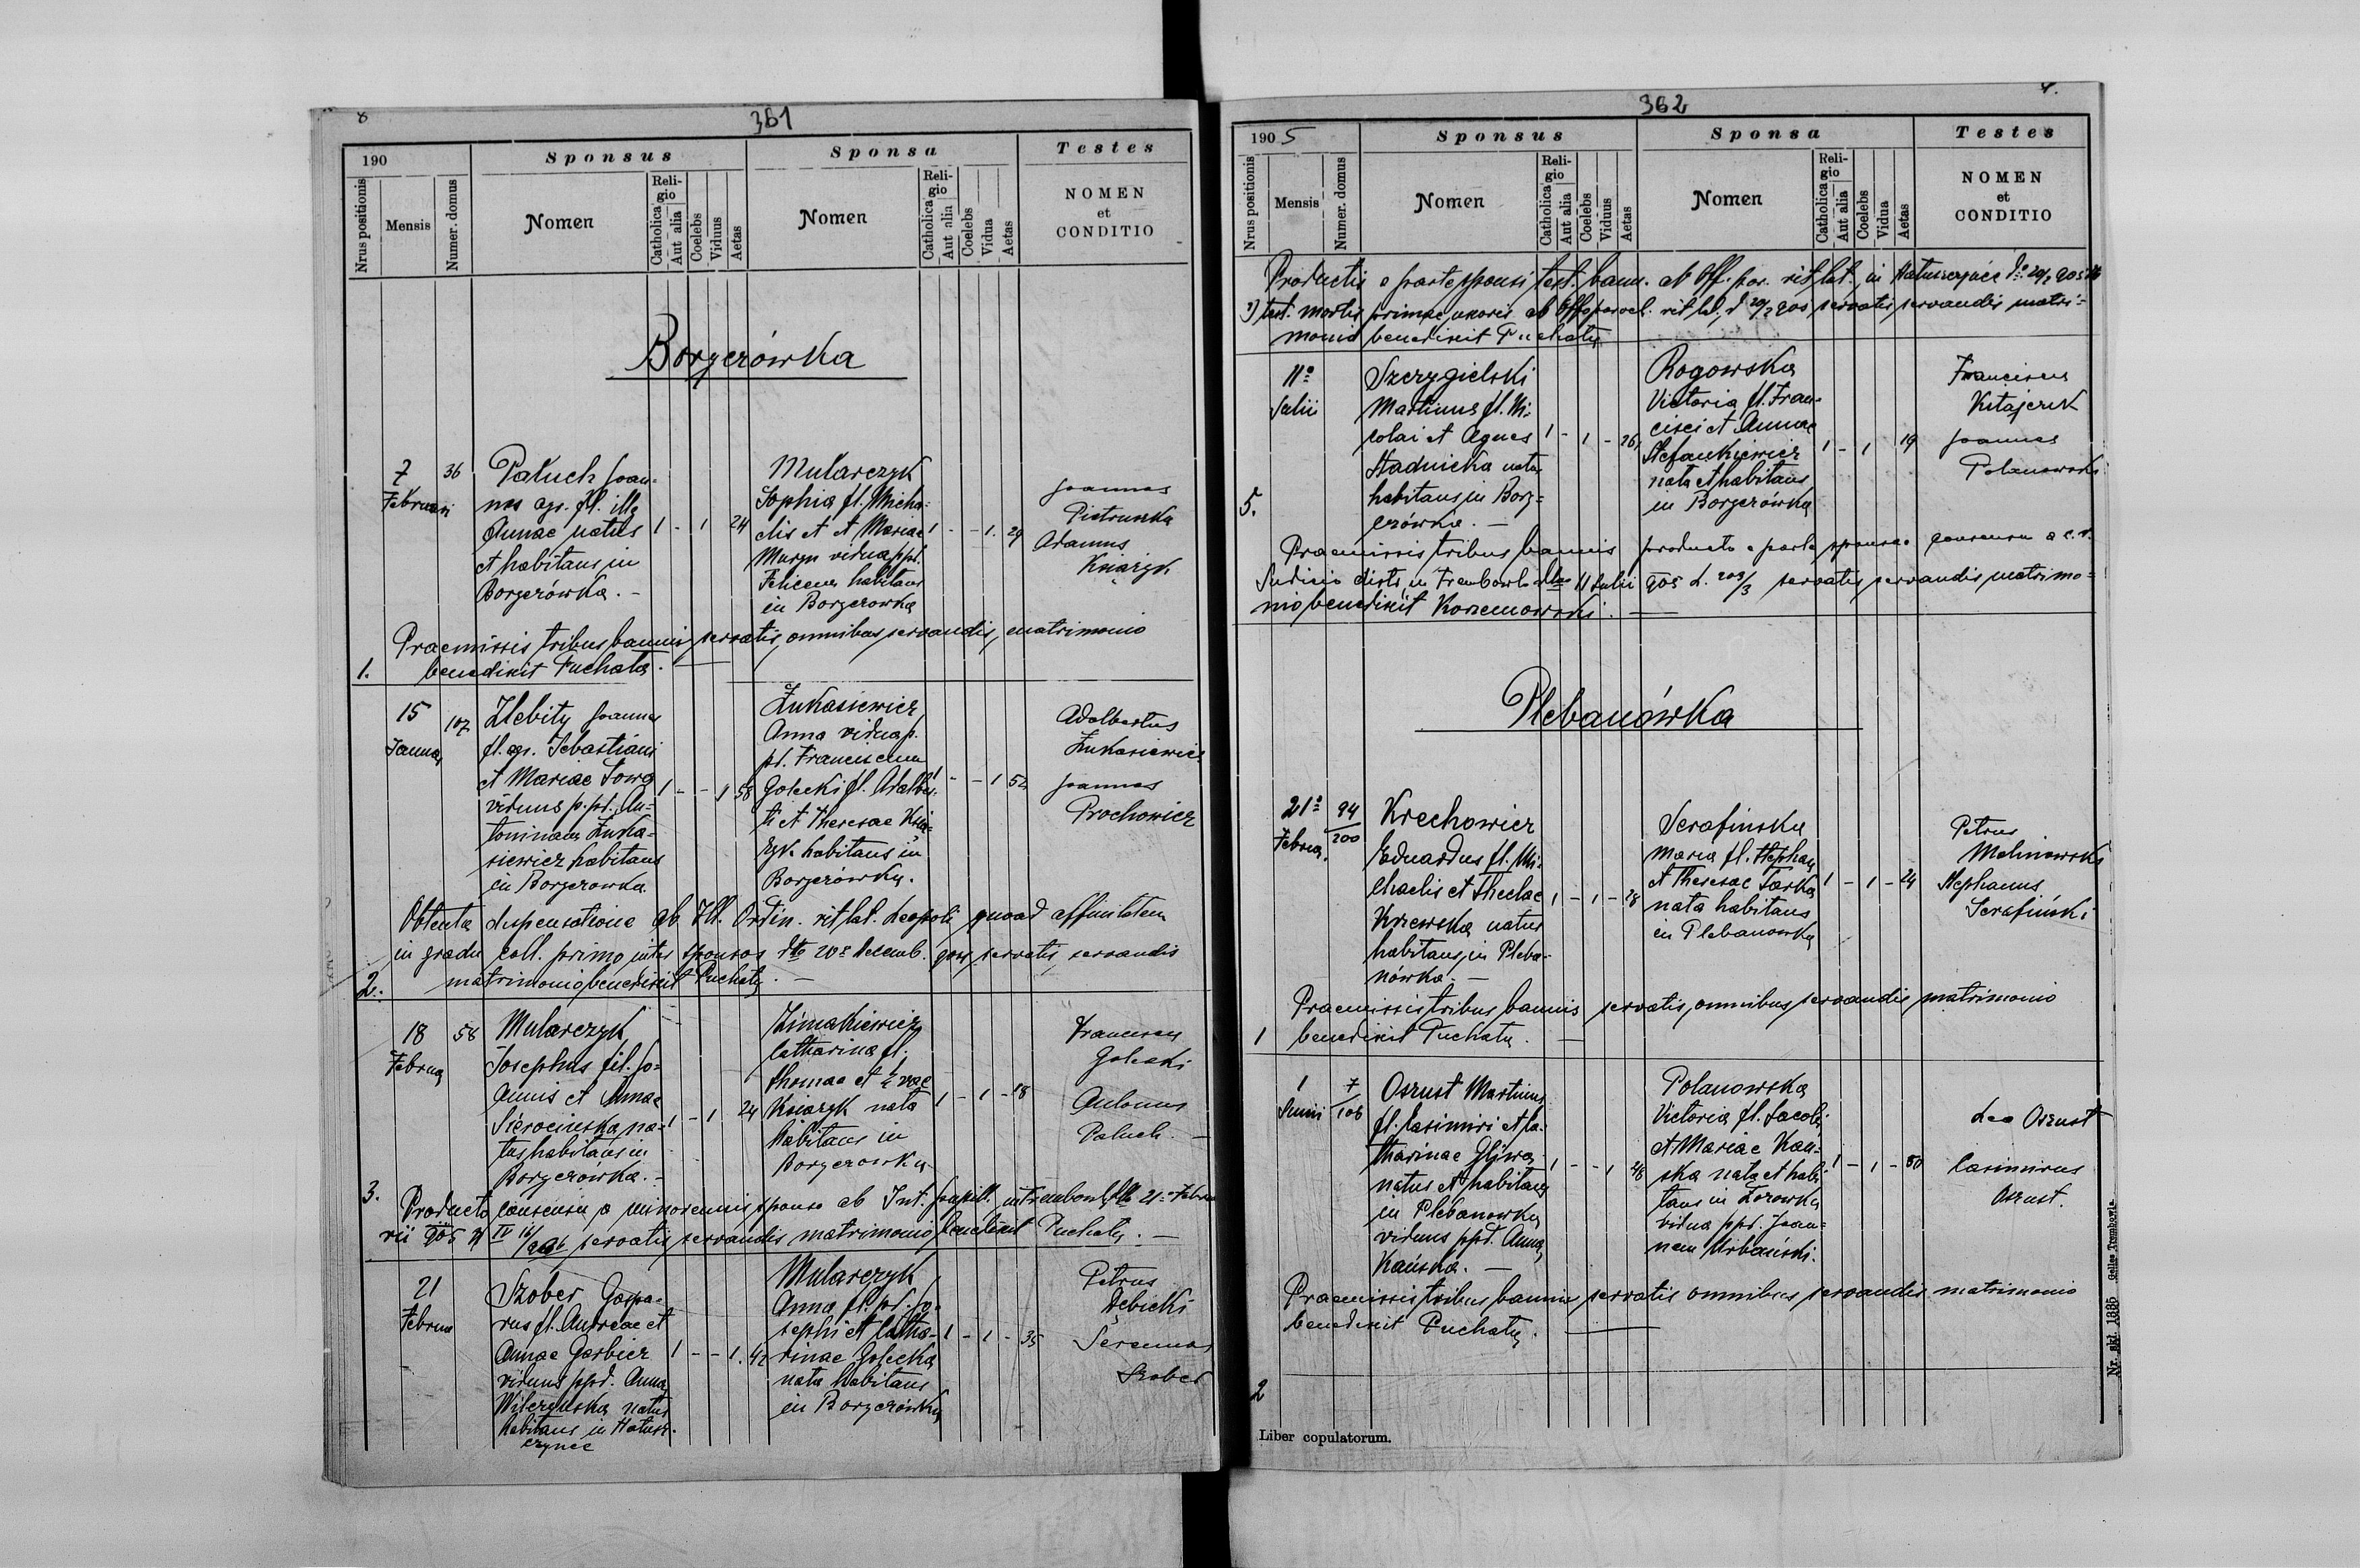 8
361
190
Sponsus
Sponsa
Testes
Nrus positionis
Mensis
Numer. domus
Nomen
Religio
Catholica
Aut alia
Coelebs
Viduus
Aetas
Nomen
Religio
Catholica
Aut alia
Coelebs
Vidua
Aetas
NOMEN
et
CONDITIO
Borgerówka
7
Februari
36
Paluch Joan-
nes agr. fil. illg
Annae natus
et habitans in
Borgerówka. -
1 - 1 24
Mularczyk
Sophia fl. Micha-
elis et Mariae
Muryn vidua ppt.
Felicem habitans
in Borgerowka
1 - - 1. 29
Joannes
Pietruszka
Adamus
Książyk
Praemissis tribus bannis, servatis, omnibus servandis, matrimonio
1.
benedixit Puchała.
15
Januar
107
Zlebity Joannes
fl. agr. Sebastiani
et Mariae Sowa
viduus p. pt. An-
toninam Łuka-
siewicz habitans
in Borgerowka
1 - - 1 58
Łukasiewicz
Anna vidua p.
pt. Franciscum
Golecki fl. Adalber-
ti et Theresae Ksią-
żyk habitans in
Borgerówka.
1 - - 1 52
Adalbertus
Łukasiewicz
Joannes
Prochowicz
Obtenta dispensatione ab Ill. Ordin. rit. lat. Leopoli quoad affinitatem
in gradu coll. primo inter sponsos dto 20 Decemb. servatis, servandis
2.
matrimonio benedixit Puchały. -
18
Februa
58
Mularczyk
Josephus fil. Jo-
annis et Annae
Sierocinska na-
tus habitans in
Borgerówka. -
1 - 1 24
Zimakiewicz
Catharina fl.
Thomae et Evae
Książyk nata
habitans in
Borgerowka
1 - 1 - 18
Franciscus
Golecki
Antonius
Paluch. -
3.
Producto consensu a minorennis sponso ab Jud. in Trembowla dto 21 Febru
rii 905 servatis servandis matrimonio benedixit Puchały. -
21
Februa
Szober Gaspa-
rus fl. Andreae et
Annae Garbicz
viduus ppt. Anna
Wilczynska natus
habitans in Hatuszczynce
1 - - 1. 42
Mularczyk
Anna fl. pt. Jo-
sephi et Catha-
rinae Golecka
nata habitans
in Borgerówka
1 - 1 - 35
Petrus
Dębicki
Szober
362
1905
Sponsus
Sponsa
Testes
Nrus positionis
Mensis
Numer. domus
Nomen
Religio
Catholica
Aut alia
Coelebs
Viduus
Aetas
Nomen
Religio
Catholica
Aut alia
Coelebs
Vidua
Aetas
NOMEN
et
CONDITIO
Productis a parte sponsi test. bann. ab Off. par. rit. lat. in Hatuszczyńce
2) test. mortis primae uxoris ab Off. paroch. rit. lat. servatis servandis matri-
monio benedixit Puchały
11
Julii
Szczygielski
Martinus fl. Ni-
colai et Agnes
Stadnicka natus
habitans in Borg-
erówka. -
1 - 1 - 26
Rogowska
Victoria fl. Fran-
cisci et Annae
Stefankiewicz
nata et habitans
in Borgerówka
1 - 1 19
Franciscus
Kitajczuk
Joannes
Polanowski
5.
Praemissis tribus bannis producto a parte sponsae consensu a c. r.
Judicio distr. in Trembowla dto 11 Julii 905 L. 203/3 servatis servandis matrimo-
nio benedixit Korzeniowski. -
Plebanówka
21
Februa.
94
200
Krechowicz
Eduardus fl. Mi-
chaelis et Theclae
Krzewska natus
habitans in Pleba-
nówka. -
1 - 1 - 28
Serafinska
Maria fl. Stephani
et Theresae Farka
nata habitans
in Plebanowka
1 - 1 - 24
Petrus
Malinowski
Stephanus
Serafiński
Praemissis tribus bannis servatis, omnibus servandis matrimonio
1
benedixit Puchały. -
1
Junii
7
106
Oszust Martinus
fl. Casimiri et Ca-
tharinae Gliwa
natus et habitans
in Plebanowka
viduus ppt. Anna
Kańska. -
1 - - 1 48
Polanowska
Victoria fl. Jacobi
et Mariae Kań-
ska nata et habi-
tans in Zorowka
vidua ppt. Joan-
nem Urbański.
1 - 1 - 50
Leo Oszust
Casimirus
Oszust.
Praemissis tribus bannis servatis omnibus servandis matrimonio
benedixit Puchały. -
2
Liber copulatorum.
Nr. skl. 1385 Gelles Trembowla.